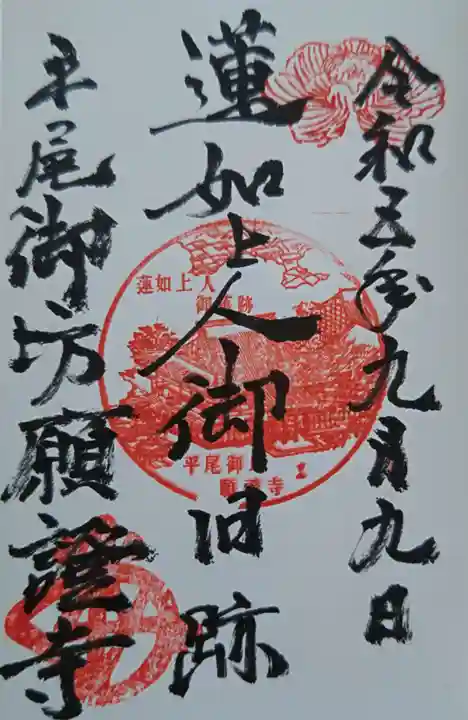 令和三年九月九日
蓮如上人御旧跡
平尾御坊願證寺
蓮如上人
御旧跡
平尾御坊
願證寺